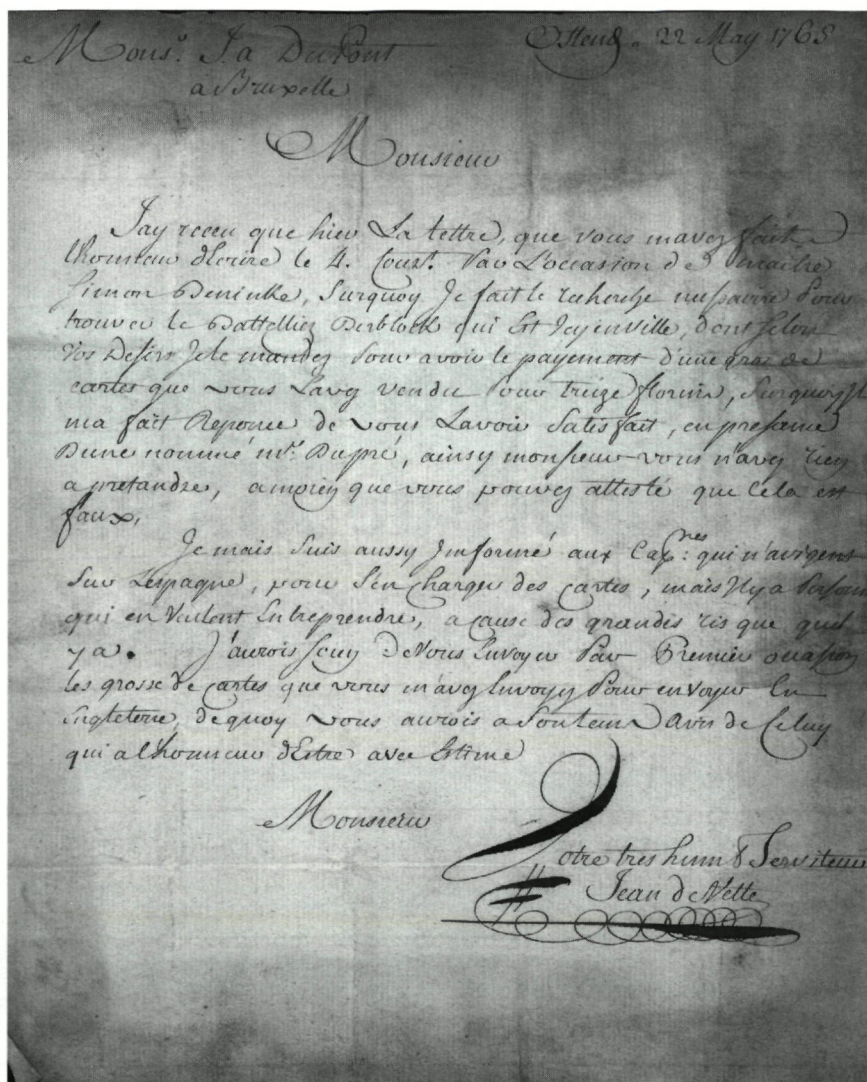 Mons.r J.a DuPont Ostend. 22 May 1765
a Bruxelle
Monsieur
Jay receu que hier La lettre, que vous mavez fait
lhonneur dEcrire le 4. Cour.t Par L'occasion de maitre
Simon Deninke, Surquoy Je fait le recherche Pour
trouver le Battellier Derblock qui Est Icy enville, dont selon
vos Desirs Je le mandez Pour avoir le payement d'une gros de
cartes que vous Lavez vendu pour treize florins, Surquoy Il
ma fait Reponce de vous Lavoir Satisfait, en presance
Dune nommé m.r Dupré, ainsy monsieur vous n'avez rien
a pretandre, a moien que vous pouvez attesté que Cela est
faux,
Je mais suis aussy Jmformé aux Cap:nes qui n'avigens
Sur Lespagne, pour s'en charger des cartes, mais Ily a Personne
qui en Veulent Entreprendre, a cause des grandis risque quil
y a. J'aurois soin de Vous Envoyer Par Premier occasion
les grosse de cartes que vous m'avez Envoyez Pour envoyer En
Engleterre, de quoy vous aurois a Son tems Avis de Celuy
qui a lhonneur dEstre avec Estime
Monsieur
Votre tres hum & Serviteur
Jean de Vette